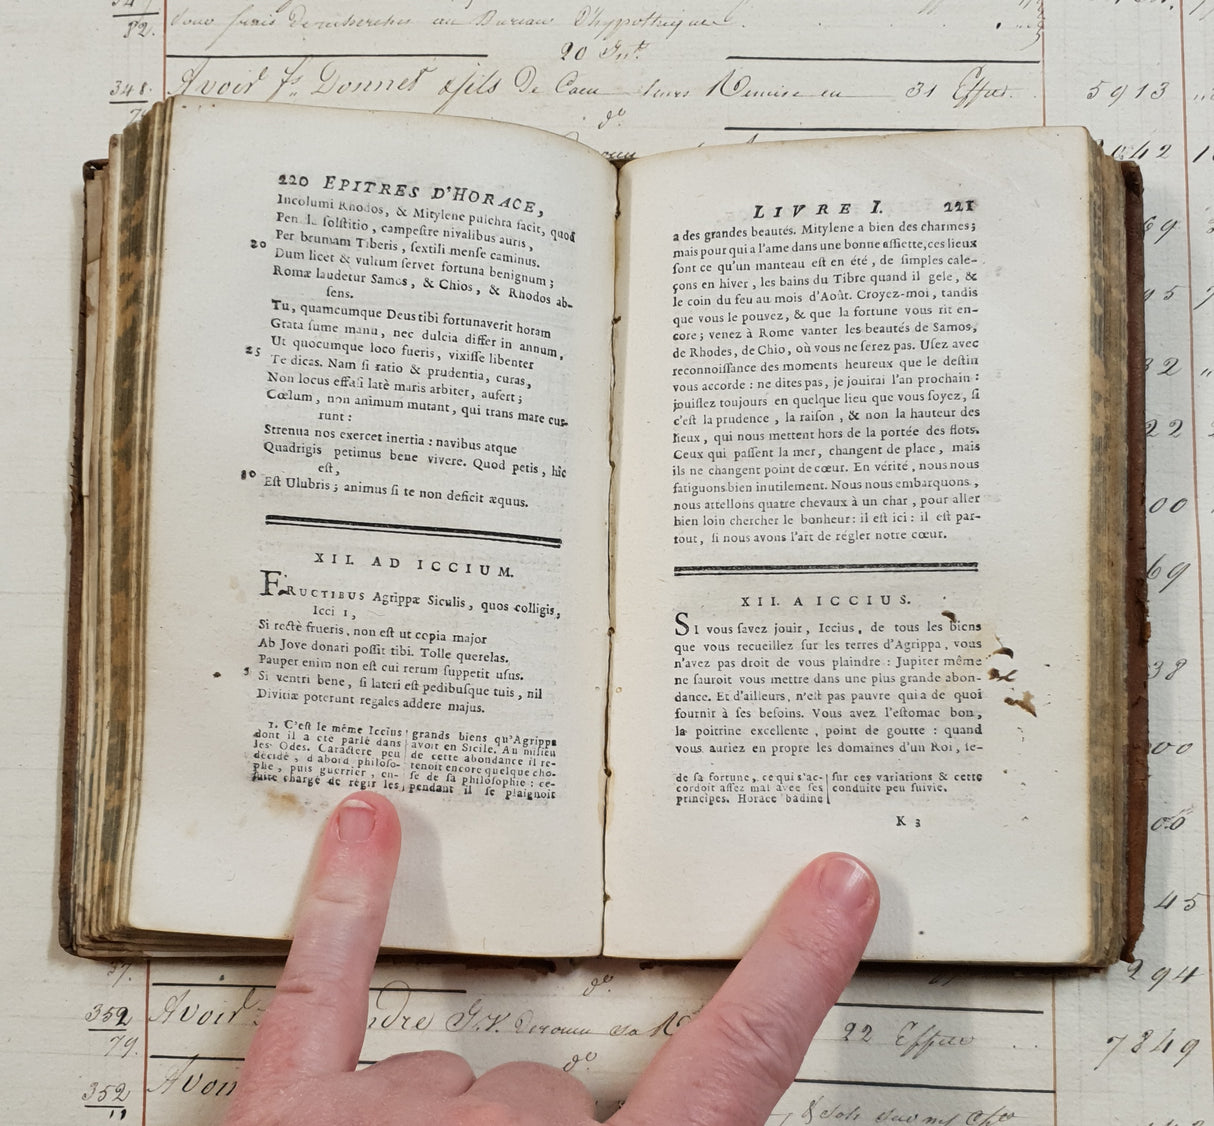 Avoir fs Donnet & fils De Caen leurs Remise en 31 Effets
348
5913
220 EPITRES D'HORACE,
Incolumi Rhodos, & Mitylene pulchra facit, quod
Penula solstitio, campestre nivalibus auris,
Per brumam Tiberis, sextili mense caminus.
20 Dum licet & vultum servet fortuna benignum;
Romæ laudetur Samos, & Chios, & Rhodos ab-
sens.
Tu, quamcumque Deus tibi fortunaverit horam
Grata sume manu, nec dulcia differ in annum,
Ut quocumque loco fueris, vixisse libenter
25 Te dicas. Nam si ratio & prudentia, curas,
Non locus effusi latè maris arbiter, aufert;
Cœlum, non animum mutant, qui trans mare cur-
runt:
Strenua nos exercet inertia: navibus atque
Quadrigis petimus bene vivere. Quod petis, hic
est,
30 Est Ulubris; animus si te non deficit æquus.
XII. AD ICCIUM.
FRUCTIBUS Agrippæ Siculis, quos colligis,
Icci 1,
Si rectè frueris, non est ut copia major
Ab Jove donari possit tibi. Tolle querelas.
Pauper enim non est cui rerum suppetit usus.
5 Si ventri bene, si lateri est pedibusque tuis, nil
Divitiæ poterunt regales addere majus.
1. C'est le même Iccius
dont il a été parlé dans
les Odes. Caractere peu
décidé, d'abord philoso-
phe, puis guerrier, en-
suite chargé de régir les
grands biens qu'Agrippa
avoit en Sicile. Au milieu
de cette abondance il re-
tenoit encore quelque cho-
se de sa philosophie: ce-
pendant il se plaignoit
LIVRE I. 221
a des grandes beautés. Mitylene a bien des charmes;
mais pour qui a l'ame dans une bonne assiette, ces lieux
sont ce qu'un manteau est en été, de simples cale-
çons en hiver, les bains du Tibre quand il gele, &
le coin du feu au mois d'Août. Croyez-moi, tandis
que vous le pouvez, & que la fortune vous rit en-
core; venez à Rome vanter les beautés de Samos,
de Rhodes, de Chio, où vous ne serez pas. Usez avec
reconnoissance des moments heureux que le destin
vous accorde: ne dites pas, je jouirai l'an prochain:
jouissez toujours en quelque lieu que vous soyez, si
c'est la prudence, la raison, & non la hauteur des
lieux, qui nous mettent hors de la portée des flots.
Ceux qui passent la mer, changent de place, mais
ils ne changent point de cœur. En vérité, nous nous
fatiguons bien inutilement. Nous nous embarquons,
nous attellons quatre chevaux à un char, pour aller
bien loin chercher le bonheur: il est ici: il est par-
tout, si nous avons l'art de régler notre cœur.
XII. A ICCIUS.
SI vous savez jouir, Iccius, de tous les biens
que vous recueillez sur les terres d'Agrippa, vous
n'avez pas droit de vous plaindre: Jupiter même
ne sauroit vous mettre dans une plus grande abon-
dance. Et d'ailleurs, n'est pas pauvre qui a de quoi
fournir à ses besoins. Vous avez l'estomac bon,
la poitrine excellente, point de goutte: quand
vous auriez en propre les domaines d'un Roi, le-
de sa fortune, ce qui s'ac-
cordoit assez mal avec ses
principes. Horace badine
sur ces variations & cette
conduite peu suivie.
K 3
294
352
79
Avoir
22 Effets
7849
352
11
Avoir